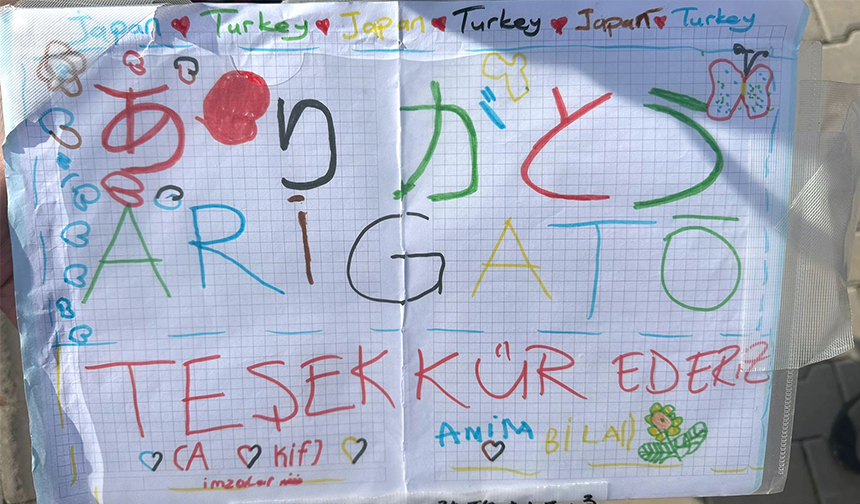 Japan ♥ Turkey ♥ Japan ♥ Turkey ♥ Japan ♥ Turkey
ありがとう
ARİGATŌ
TEŞEKKÜR EDERİZ
(A Kif)
BİLAL
imzalar